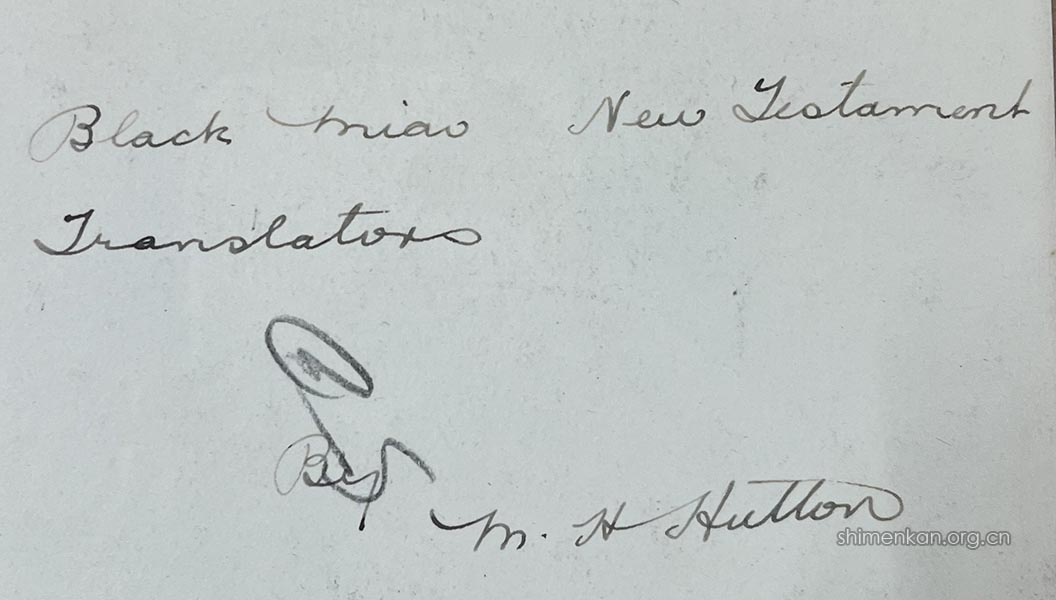 Black Miao New Testament
Translators
By
M. H Hutton
shimenkan.org.cn